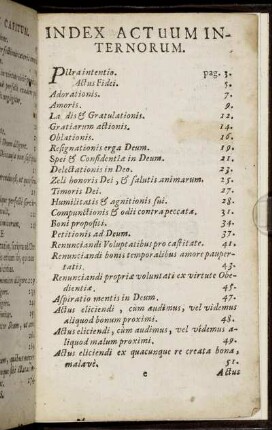 CAPITUM.
INDEX ACTUUM IN-
TERNORUM.
Pura intentio. pag. 3.
Actus Fidei. 5.
Adorationis. 7.
Amoris. 9.
La dis & Gratulationis. 12.
Gratiarum actionis. 14.
Oblationis. 16.
Resignationis erga Deum. 19.
Spei & Confidentiæ in Deum. 21.
Delectationis in Deo. 23.
Zeli honoris Dei, & salutis animarum. 25.
Timoris Dei. 27.
Humilitatis & agnitionis sui. 28.
Compunctionis & odii contra peccata. 31.
Boni propositi. 34.
Petitionis ad Deum. 37.
Renunciandi Voluptatibus pro castitate. 41.
Renunciandi bonis temporalibus amore pauper-
tatis. 43.
Renunciandi propriæ voluntati ex virtute Obe-
dientiæ. 45.
Aspiratio mentis in Deum. 47.
Actus eliciendi, cùm audimus, vel videmus
aliquod bonum proximi. 48.
Actus eliciendi, cùm audimus, vel videmus a-
liquod malum proximi. 49.
Actus eliciendi ex quacunque re creata bona,
mala vè. 51.
e Actus